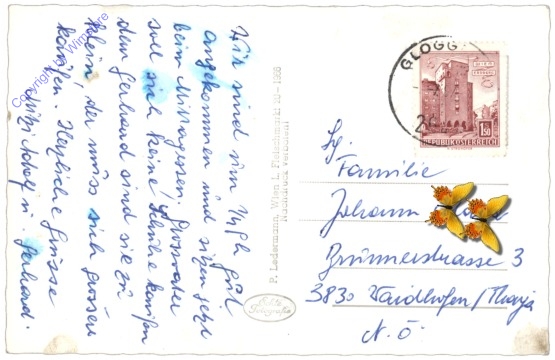 Wir sind um ½ 1h gut
angekommen und sitzen jetzt
beim Mittagessen. Grossvater
soll sich keine Schuhe kaufen
dem Gerhard sind sie zu
klein, der muss sich grössere
kaufen. Herzliche Grüsse
Mitzi Adolf u. Gerhard.
P. Ledermann, Wien I., Fleischmarkt 20 - 1958
Nachdruck verboten!
Echte
Fotografie
GLOGG
REPUBLIK ÖSTERREICH
1.50
Fg.
Familie
Johann
Brünnerstrasse 3
3830 Waidhofen/Thaya
N.Ö.
Copyright by